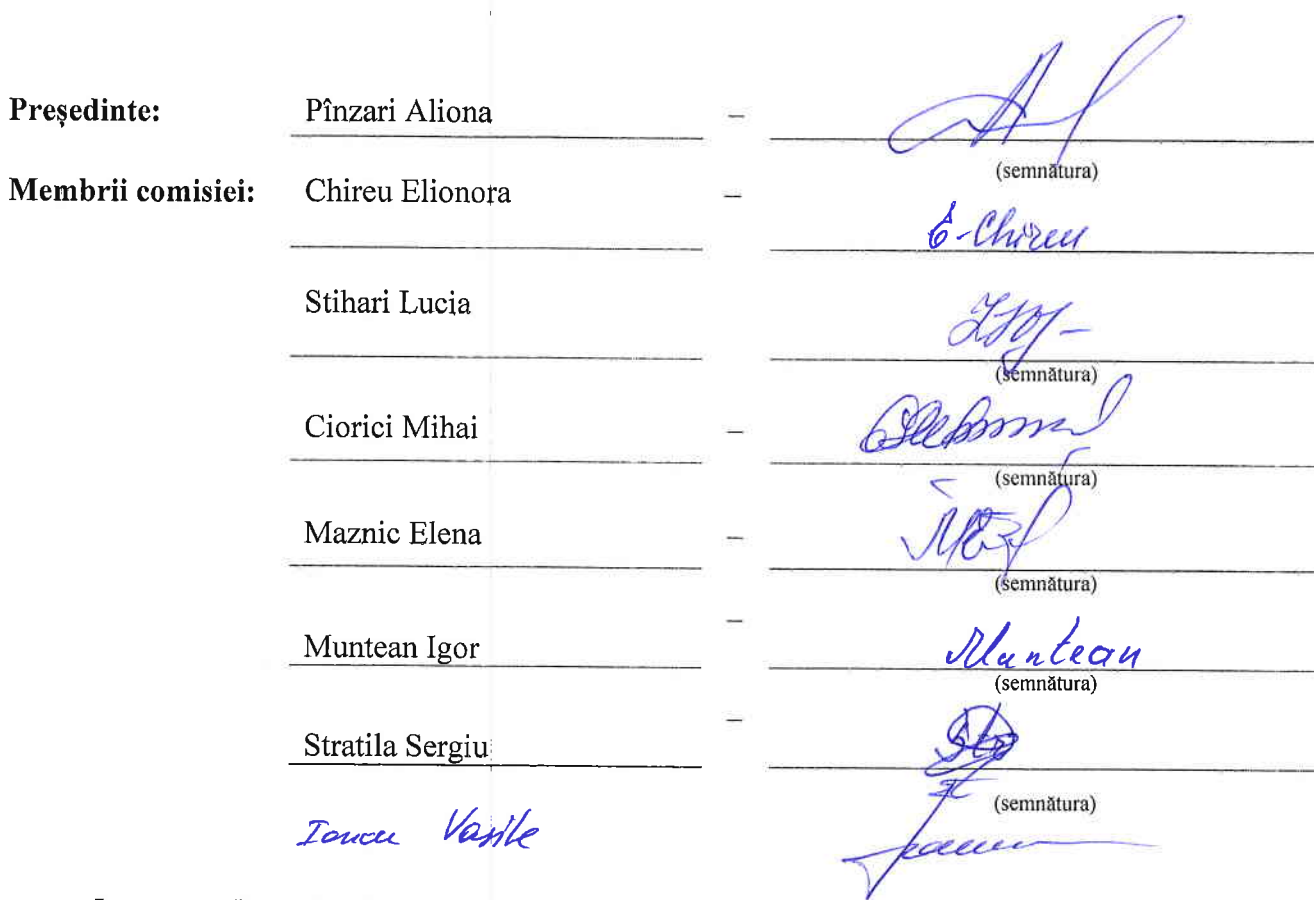 Președinte: Pînzari Aliona –
(semnătura)
Membrii comisiei: Chireu Elionora –
E-Chireu
Stihari Lucia
(semnătura)
Ciorici Mihai –
(semnătura)
Maznic Elena –
(semnătura)
Muntean Igor – Muntean
(semnătura)
Stratila Sergiu –
(semnătura)
Iancu Vasile